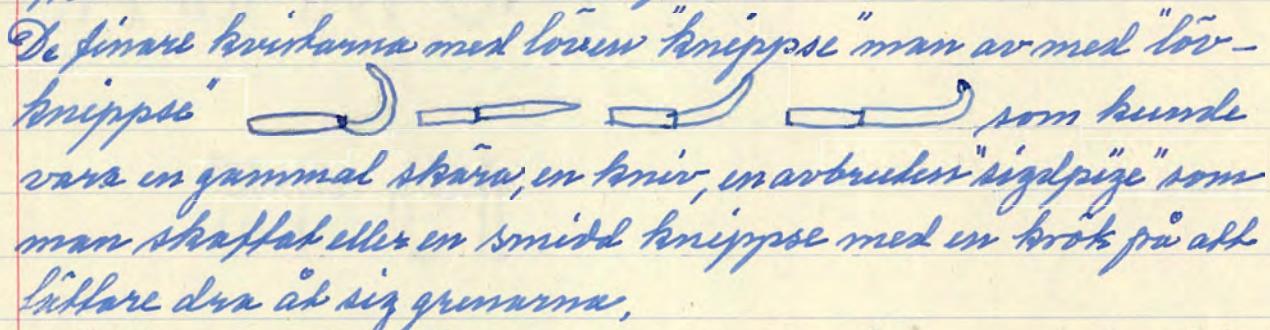 De finare kvistarna med löven "kneppse" man av med "löv-
kneppse" som kunde
vara en gammal skära, en kniv, en avbruten "sigdpige" som
man skaftat eller en smidd kneppse med en krök på att
lättare dra åt sig grenarna.